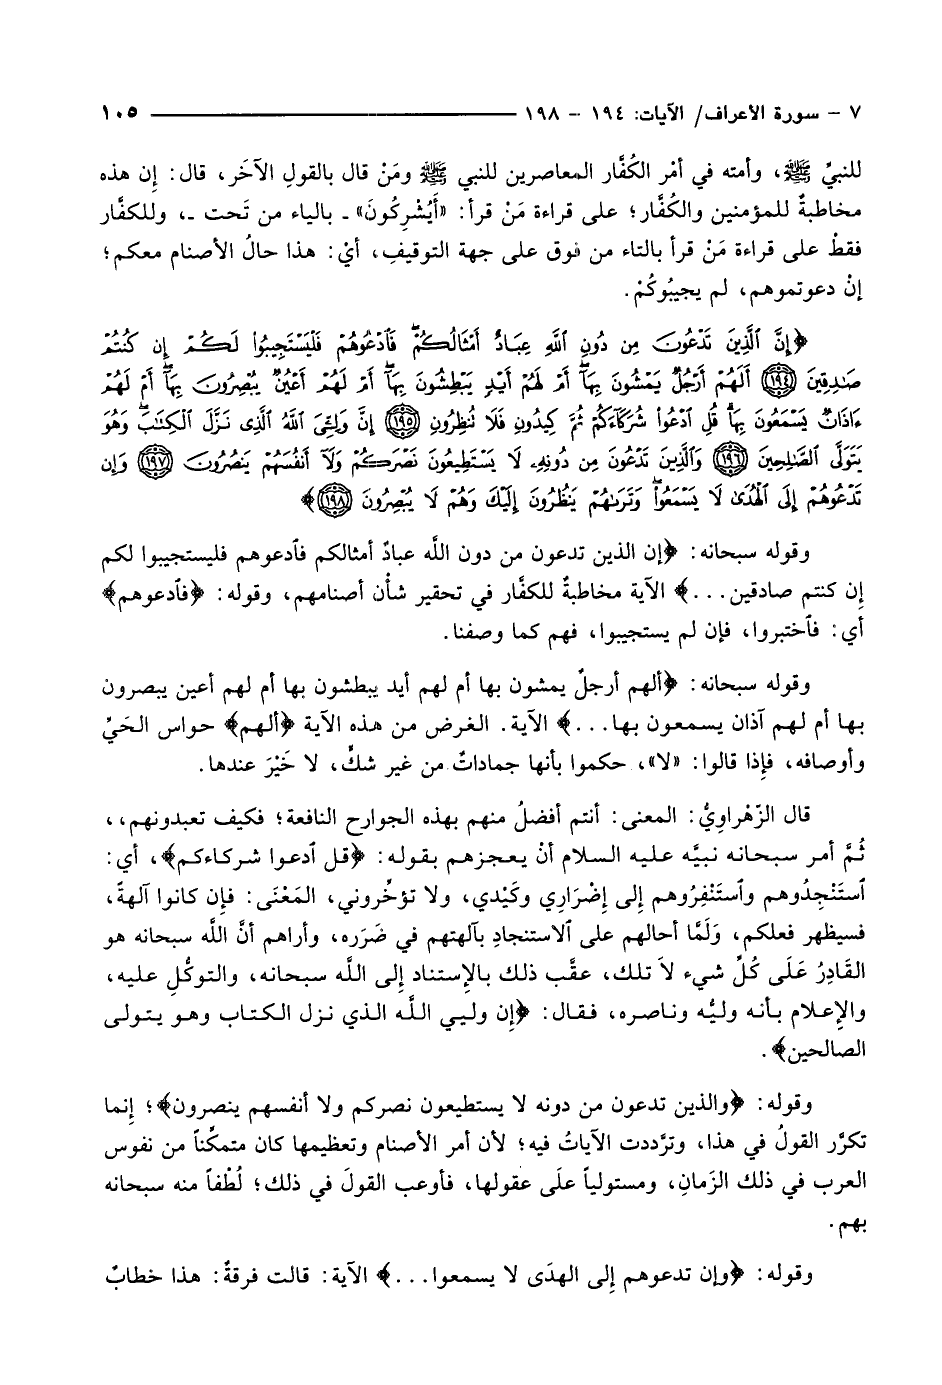 ٧ - سورة الأعراف/ الآيات: ١٩٤ - ١٩٨ ١٠٥
للنبيِّ ﷺ، وأمته في أمْر الكُفَّار المعاصرين للنبي ﷺ ومَنْ قال بالقولِ الآخَر، قال: إن هذه
مخاطبةٌ للمؤمنين والكُفَّار؛ على قراءة مَنْ قرأ: «أَيُشْرِكُونَ» ـ بالياء من تَحت ـ، وللكفَّار
فقطْ على قراءة مَنْ قرأ بالتاء من فوق على جهة التوقيفِ، أيْ: هذا حالُ الأصنام معكم؛
إنْ دعوتموهم، لم يجيبُوكُمْ.
﴿إِنَّ ٱلَّذِينَ تَدْعُونَ مِن دُونِ ٱللَّهِ عِبَادٌ أَمْثَالُكُمْ فَٱدْعُوهُمْ فَلْيَسْتَجِيبُوا لَكُمْ إِن كُنتُمْ
صَٰدِقِينَ ﴿١٩٤﴾ أَلَهُمْ أَرْجُلٌ يَمْشُونَ بِهَآ أَمْ لَهُمْ أَيْدٍ يَبْطِشُونَ بِهَآ أَمْ لَهُمْ أَعْيُنٌ يُبْصِرُونَ بِهَآ أَمْ لَهُمْ
ءَاذَانٌ يَسْمَعُونَ بِهَا قُلِ ٱدْعُوا شُرَكَآءَكُمْ ثُمَّ كِيدُونِ فَلَا نُنظِرُونِ ﴿١٩٥﴾ إِنَّ وَلِـِّۧىَ ٱللَّهُ ٱلَّذِى نَزَّلَ ٱلْكِتَٰبَ وَهُوَ
يَتَوَلَّى ٱلصَّٰلِحِينَ ﴿١٩٦﴾ وَٱلَّذِينَ تَدْعُونَ مِن دُونِهِۦ لَا يَسْتَطِيعُونَ نَصْرَكُمْ وَلَآ أَنفُسَهُمْ يَنصُرُونَ ﴿١٩٧﴾ وَإِن
تَدْعُوهُمْ إِلَى ٱلْهُدَىٰ لَا يَسْمَعُوا وَتَرَىٰهُمْ يَنظُرُونَ إِلَيْكَ وَهُمْ لَا يُبْصِرُونَ ﴿١٩٨﴾﴾
وقوله سبحانه: ﴿إن الذين تدعون من دون اللَّه عبادٌ أمثالكم فٱدعوهم فليستجيبوا لكم
إِن كنتم صادقين...﴾ الآية مخاطبةٌ للكفَّار في تحقير شأْن أصنامهم، وقوله: ﴿فٱدعوهم﴾
أي: فٱختبروا، فإن لم يستجيبوا، فهم كما وصفنا.
وقوله سبحانه: ﴿ألهم أرجلٌ يمشون بها أم لهم أيد يبطشون بها أم لهم أعين يبصرون
بها أم لهم آذان يسمعون بها...﴾ الآية. الغرض من هذه الآية ﴿ألهم﴾ حواس الحَيِّ
وأوصافه، فإِذا قالوا: «لا»، حكموا بأنها جماداتٌ من غير شكٍّ، لا خَيْرَ عندها.
قال الزّهْراوِيُّ: المعنى: أنتم أفضلُ منهم بهذه الجوارح النافعة؛ فكيف تعبدونهم،،
ثُمَّ أمر سبحانه نبيَّه عليه السلام أنْ يعجزهم بقوله: ﴿قل ٱدعوا شركاءكم﴾، أي:
ٱستَنْجِدُوهم وٱستَنْفِرُوهم إِلى إِضْرَارِي وكَيْدي، ولا تؤخِّروني، المَعْنَى: فإِن كانوا آلهةً،
فسيظهر فعلكم، وَلَمَّا أحالهم على ٱلاستنجادِ بآلهتهم في ضَرَره، وأراهم أنَّ اللَّه سبحانه هو
القَادِرُ عَلَى كُلِّ شيء لاَ تلك، عقَّب ذلك بالإِستناد إِلى اللَّه سبحانه، والتوكُّلِ عليه،
والإِعلام بأنه وليُّه وناصره، فقال: ﴿إِن وليي اللَّه الذي نزل الكتاب وهو يتولى
الصالحين﴾.
وقوله: ﴿والذين تدعون من دونه لا يستطيعون نصركم ولا أنفسهم ينصرون﴾؛ إِنما
تكرَّر القولُ في هذا، وترَّددت الآياتُ فيه؛ لأن أمر الأصنام وتعظيمها كان متمكِّناً من نفوس
العرب في ذلك الزَمانِ، ومستولياً علَى عقولها، فأوعب القولَ في ذلك؛ لُطْفاً منه سبحانه
بهم.
وقوله: ﴿وإِن تدعوهم إِلى الهدَى لا يسمعوا...﴾ الآية: قالت فرقةٌ: هذا خطابٌ